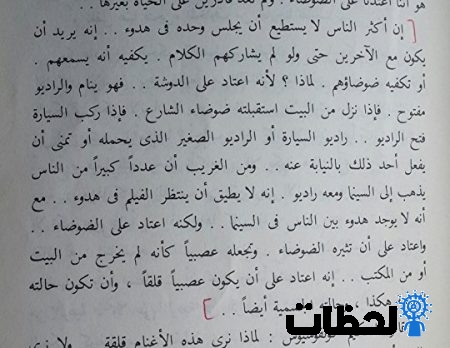 هو أننا اعتدنا على الضوضاء . ولم نعد قادرين على الحياة بغيرها . .
[ إن أكثر الناس لا يستطيع أن يجلس وحده فى هدوء . . إنه يريد أن
يكون مع الآخرين حتى ولو لم يشاركهم الكلام . يكفيه أنه يسمعهم .
أو تكفيه ضوضاؤهم . لماذا ؟ لأنه اعتاد على الدوشة . . فهو ينام والراديو
مفتوح . فإذا نزل من البيت استقبلته ضوضاء الشارع . فإذا ركب السيارة
فتح الراديو . . راديو السيارة أو الراديو الصغير الذى يحمله أو تمنى أن
يفعل أحد ذلك بالنيابة عنه . . ومن الغريب أن عدداً كبيراً من الناس
يذهب إلى السينما ومعه راديو . إنه لا يطيق أن ينتظر الفيلم فى هدوء . . مع
أنه لا يوجد هدوء بين الناس فى السينما . . ولكنه اعتاد على الضوضاء . .
واعتاد على أن تثيره الضوضاء . وتجعله عصبياً كأنه لم يخرج من البيت
أو من المكتب . . إنه اعتاد على أن يكون عصبياً قلقاً ، وأن تكون حالته
هكذا ، وحالته أيضاً . . ]
لماذا نرى هذه الأغنام قلقة ولا نرى
لحظات